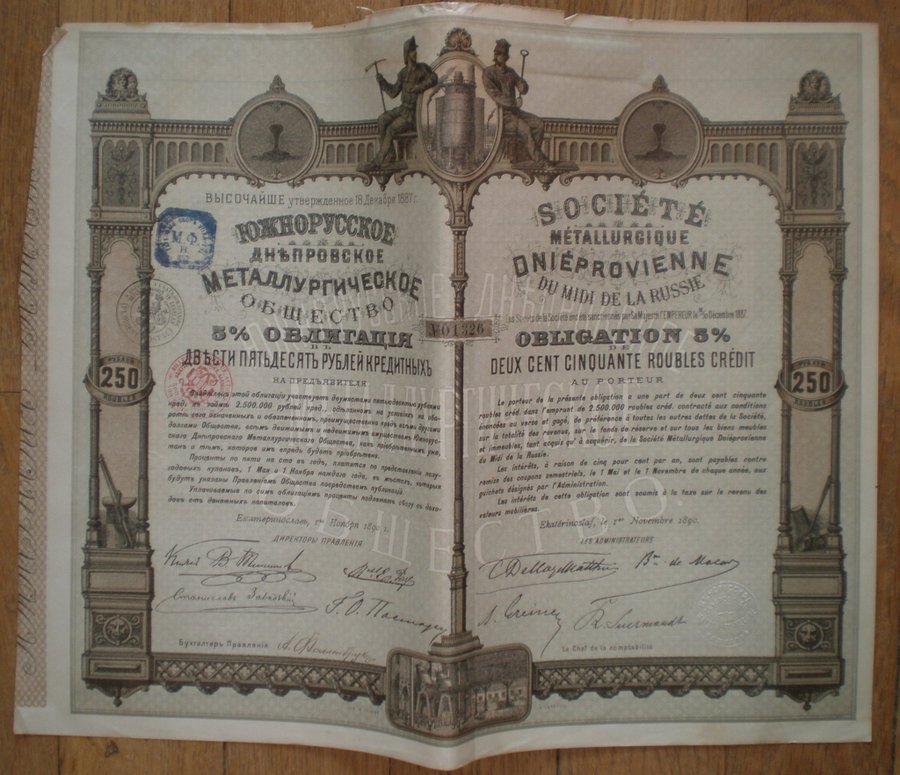 ВЫСОЧАЙШЕ утвержденное 18 Декабря 1887 г.
ЮЖНОРУССКОЕ
ДНѢПРОВСКОЕ
МЕТАЛЛУРГИЧЕСКОЕ
ОБЩЕСТВО
5% ОБЛИГАЦІЯ
ВЪ
ДВѢСТИ ПЯТЬДЕСЯТЪ РУБЛЕЙ КРЕДИТНЫХЪ
НА ПРЕДЪЯВИТЕЛЯ
этой облигации участвуетъ двумястами пятьюдесятью рублями
кред. въ займѣ 2.500.000 рублей кред., сдѣланномъ на условіяхъ на обо-
ротѣ сего означенныхъ и обезпеченномъ, преимущественно предъ всѣми другими
долгами Общества, всѣмъ движимымъ и недвижимымъ имуществомъ Южнорус-
скаго Днѣпровскаго Металлургическаго Общества, какъ пріобрѣтеннымъ уже,
такъ и тѣмъ, которое имъ впредь будетъ пріобрѣтено.
Проценты по пяти на сто въ годъ, платятся по представленіи полу-
годовыхъ купоновъ, 1 Мая и 1 Ноября каждаго года, въ мѣстахъ, которыя
будутъ указаны Правленіемъ Общества посредствомъ публикацій.
Уплачиваемые по симъ облигаціямъ проценты подлежатъ сбору съ дохо-
довъ отъ денежныхъ капиталовъ.
Екатеринославъ, 1го Ноября 1890 г.
ДИРЕКТОРЫ ПРАВЛЕНІЯ
Бухгалтеръ Правленія
М.Ф.
250
РУБЛЕЙ
№01326
SOCIÉTÉ
MÉTALLURGIQUE
DNIÉPROVIENNE
DU MIDI DE LA RUSSIE
Les Statuts de la Société ont été sanctionnés par Sa Majesté l'EMPEREUR le 18/30 Décembre 1887.
OBLIGATION 5%
DE
DEUX CENT CINQUANTE ROUBLES CRÉDIT
AU PORTEUR
Le porteur de la présente obligation a une part de deux cent cinquante
roubles créd. dans l'emprunt de 2.500.000 roubles créd. contracté aux conditions
énoncées au verso et gagé, de préférence à toutes les autres dettes de la Société,
sur la totalité des revenus, sur le fonds de réserve et sur tous les biens meubles
et immeubles, tant acquis qu'à acquérir, de la Société Métallurgique Dniéprovienne
du Midi de la Russie.
Les intérêts, à raison de cinq pour cent par an, sont payables contre
remise des coupons semestriels, le 1 Mai et le 1 Novembre de chaque année, aux
guichets désignés par l'Administration.
Les intérêts de cette obligation sont soumis à la taxe sur le revenu des
valeurs mobilières.
Ekatérinoslaf, le 1er Novembre 1890.
LES ADMINISTRATEURS
Le Chef de la comptabilité
250
ROUBLES